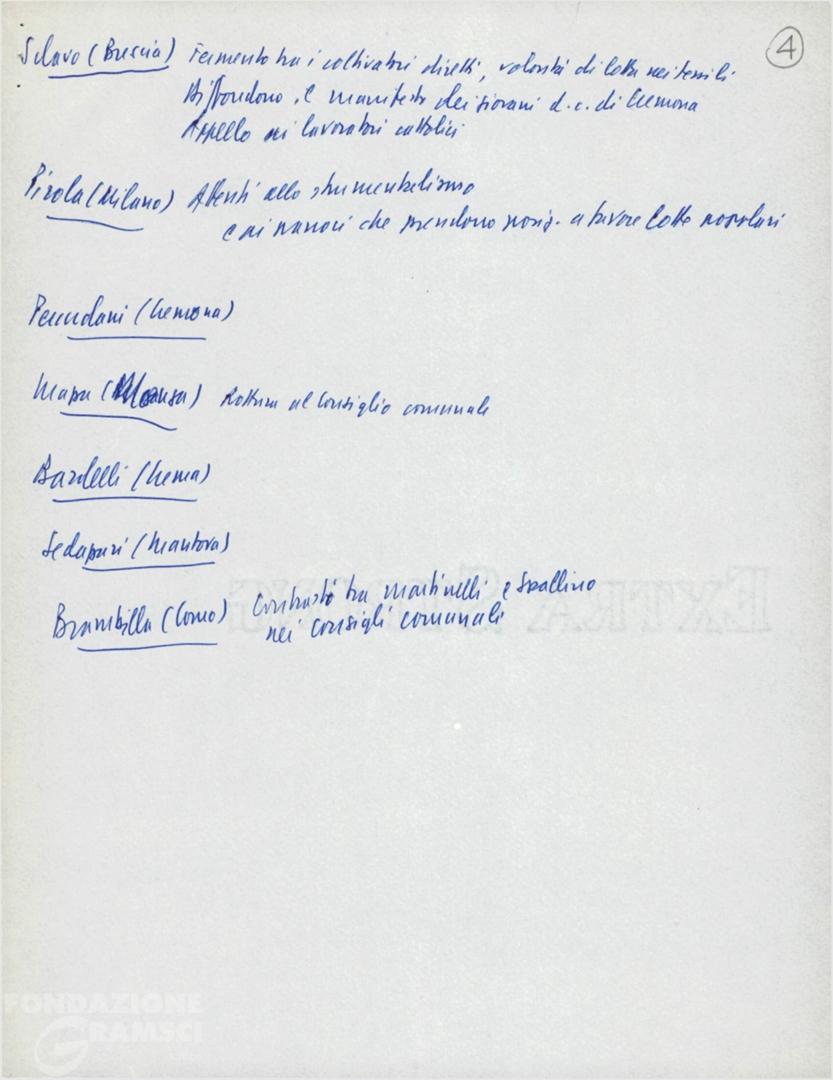 4
Sclavo (Brescia) Fermento tra i coltivatori diretti, volontà di lotta nei tessili
Diffondono il manifesto dei giovani d.c. di Cremona
Appello ai lavoratori cattolici
Pirola (Milano) Attenti allo strumentalismo
e ai parroci che prendono posiz. a favore lotte popolari
(Cremona)
Rottura al Consiglio comunale
Bardelli (Crema)
(Mantova)
Brambilla (Como) Contrasto tra Martinelli e Spallino
nei consigli comunali
EXTRA STRONG
FONDAZIONE
GRAMSCI